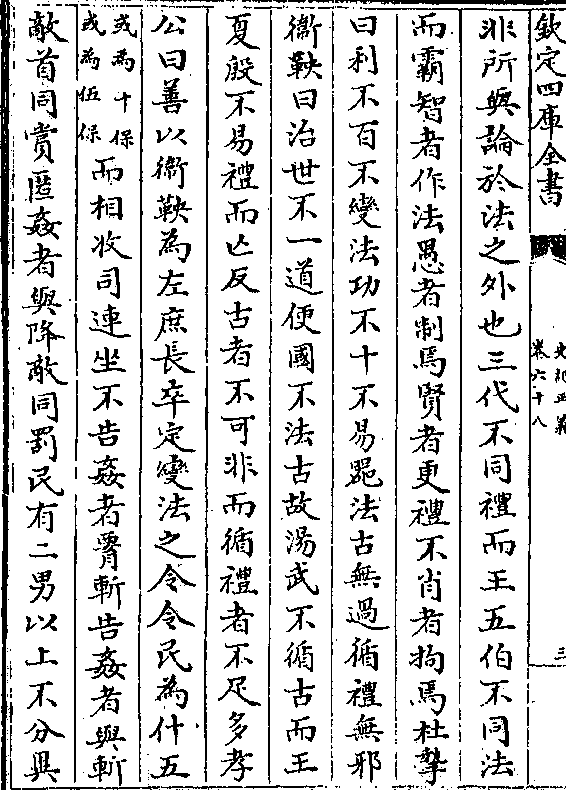 欽定四庫全書
史記正義
卷六十八
三
非所與論於法之外也三代不同禮而王五伯不同法
而霸智者作法愚者制焉賢者更禮不肖者拘焉杜摯
曰利不百不變法功不十不易器法古無過循禮無邪
衞鞅曰治世不一道便國不法古故湯武不循古而王
夏殷不易禮而亡反古者不可非而循禮者不足多孝
公曰善以衞鞅為左庶長卒定變法之令令民為什五
或為十保
或為伍保
而相收司連坐不告姦者腰斬告姦者與斬
敵首同賞匿姦者與降敵同罰民有二男以上不分異